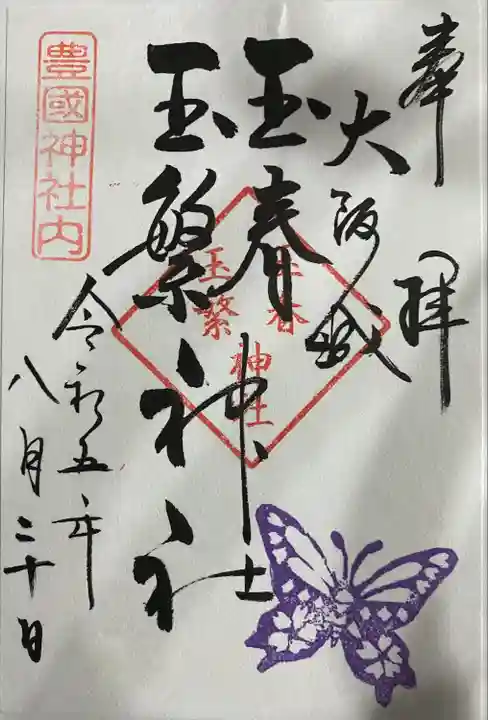 奉拝
大阪城
玉春
玉繁神社
玉春
玉繁
神社
豊國神社内
令和五年
八月二十日